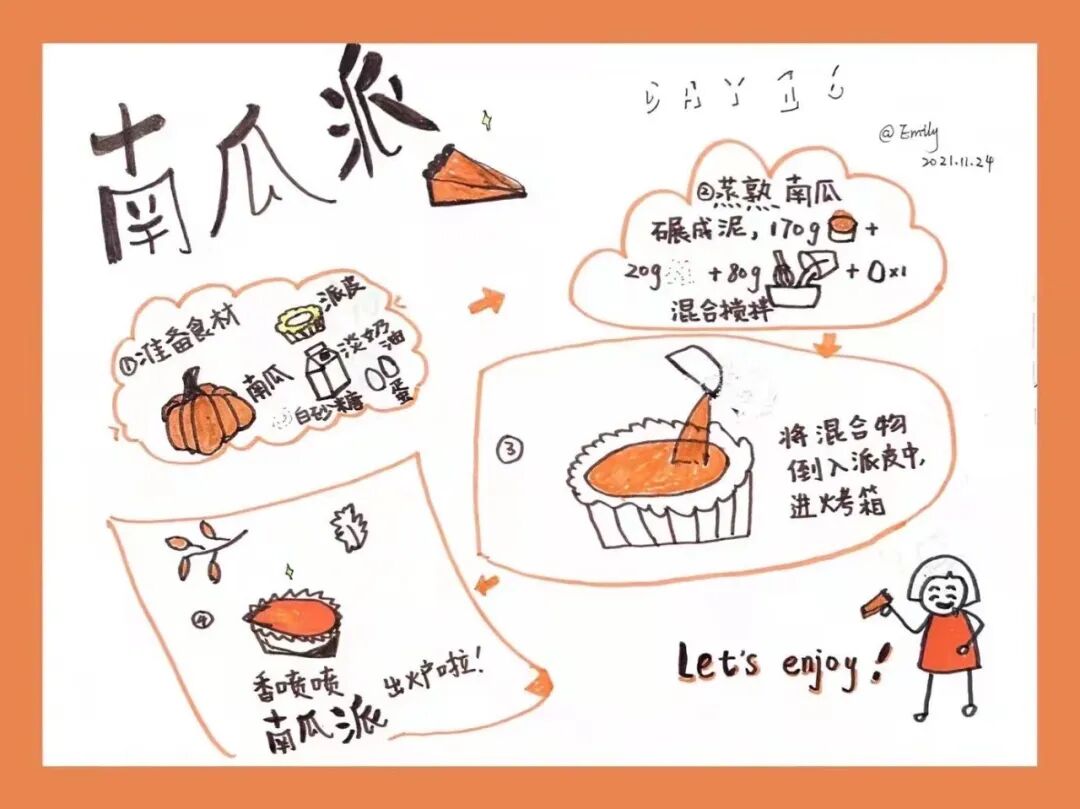 南瓜派
DAY 16
@Emily
2021.11.24
①准备食材
派皮
淡奶油
南瓜
白砂糖
蛋
②蒸熟南瓜
碾成泥，170g +
20g + 80g + 0x1
混合搅拌
③
将混合物
倒入派皮中，
进烤箱
④
香喷喷
南瓜派
出炉啦！
Let's enjoy!